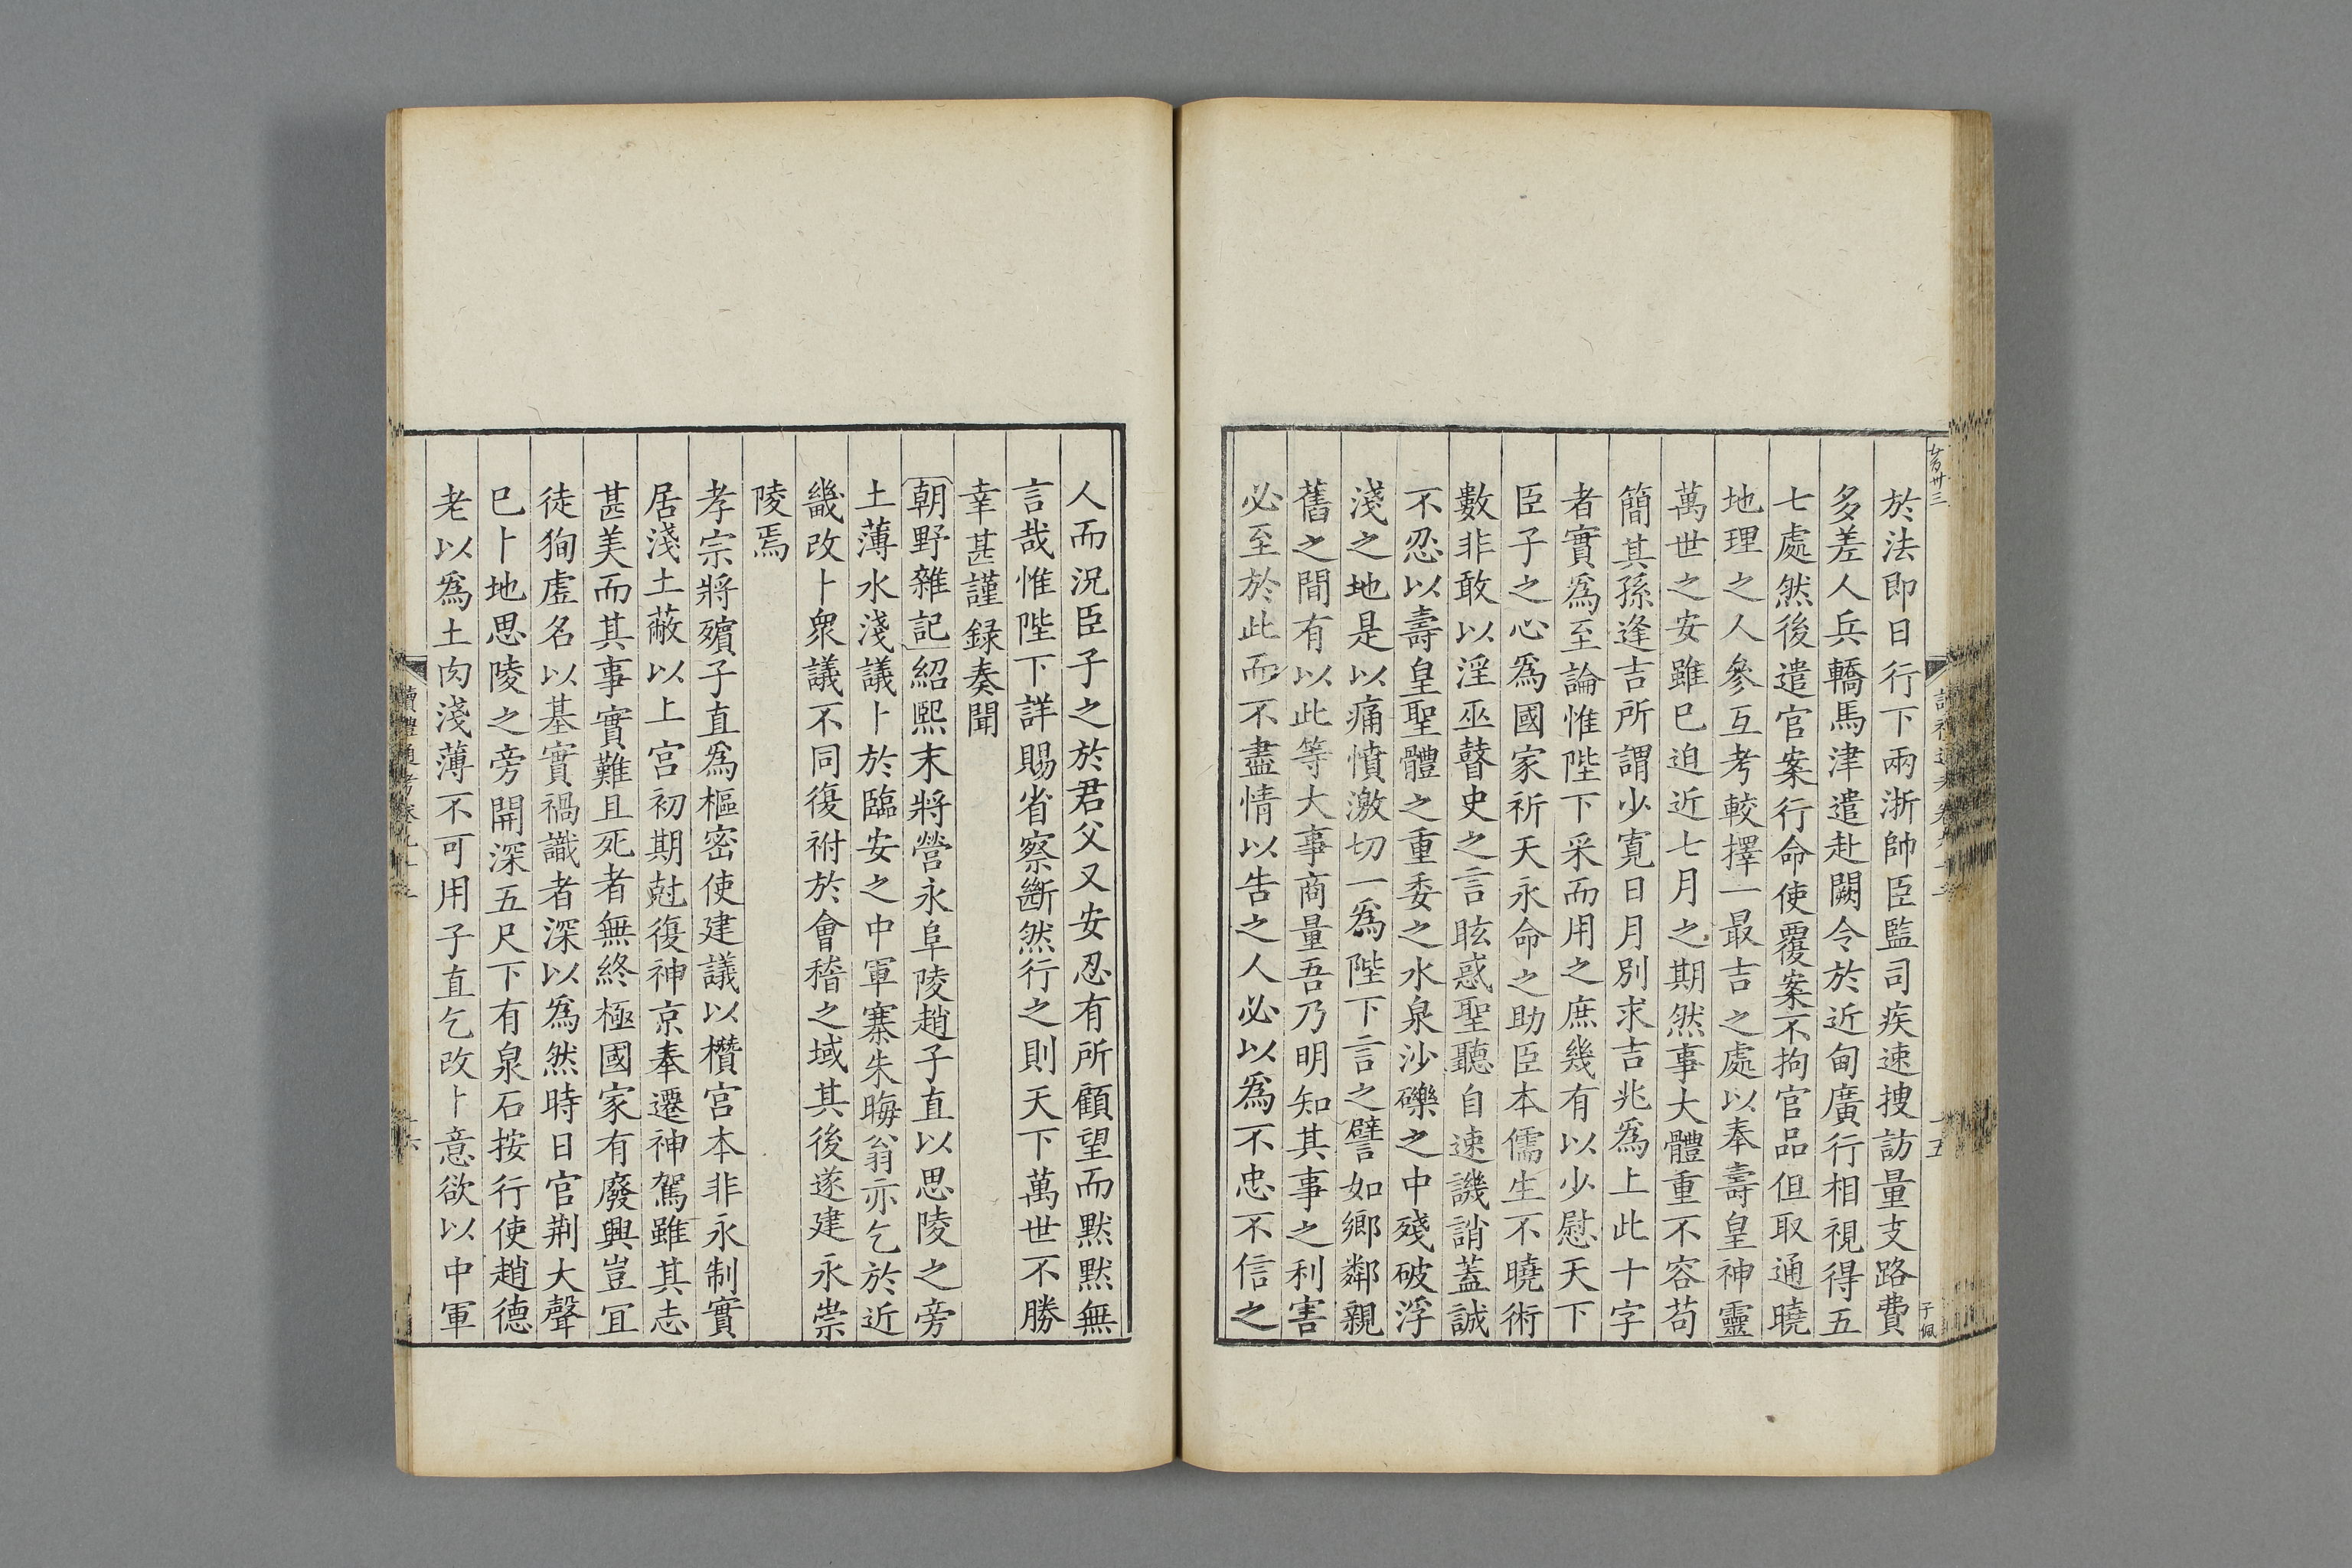 於法即日行下兩浙帥臣監司疾速搜訪量支路費
多差人兵轎馬津遣赴闕令於近甸廣行相視得五
七處然後遣官案行命使覆案不拘官品但取通曉
地理之人參互考較擇一最吉之處以奉壽皇神靈
萬世之安雖已迫近七月之期然事大體重不容苟
簡其孫逢吉所謂少寬日月別求吉兆爲上此十字
者實爲至論惟陛下采而用之庶幾有以少慰天下
臣子之心爲國家祈天永命之助臣本儒生不曉術
數非敢以淫巫瞽史之言眩惑聖聽自速譏誚蓋誠
不忍以壽皇聖體之重委之水泉沙礫之中殘破浮
淺之地是以痛憤激切一爲陛下言之譬如鄉鄰親
舊之間有以此等大事商量吾乃明知其事之利害
必至於此而不盡情以告之人必以爲不忠不信之
子佩
人而況臣子之於君父又安忍有所顧望而默默無
言哉惟陛下詳賜省察斷然行之則天下萬世不勝
幸甚謹録奏聞
朝野雜記紹熙末將營永阜陵趙子直以思陵之旁
土薄水淺議卜於臨安之中軍寨朱晦翁亦乞於近
畿改卜衆議不同復祔於會稽之域其後遂建永崇
陵焉
孝宗將殯子直爲樞密使建議以欑宮本非永制實
居淺土蔽以上宮初期尅復神京奉遷神駕雖其志
甚美而其事實難且死者無終極國家有廢興豈宜
徒狥虛名以基實禍識者深以爲然時日官荆大聲
已卜地思陵之旁開深五尺下有泉石按行使趙德
老以爲土肉淺薄不可用子直乞改卜意欲以中軍
讀禮通考卷九十